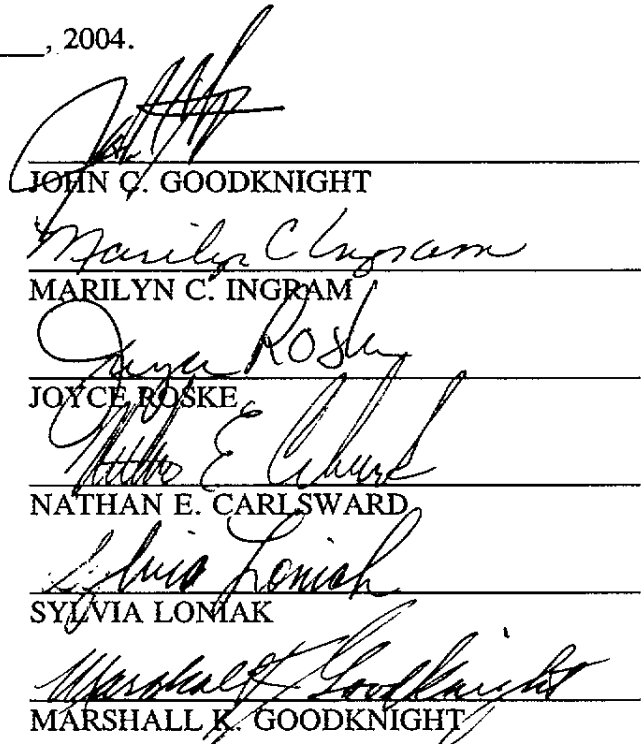 , 2004.
JOHN C. GOODKNIGHT
Marilyn C Ingram
MARILYN C. INGRAM
Joyce Roske
JOYCE ROSKE
NATHAN E. CARLSWARD
Sylvia Loniak
SYLVIA LONIAK
Marshall K Goodknight
MARSHALL K. GOODKNIGHT